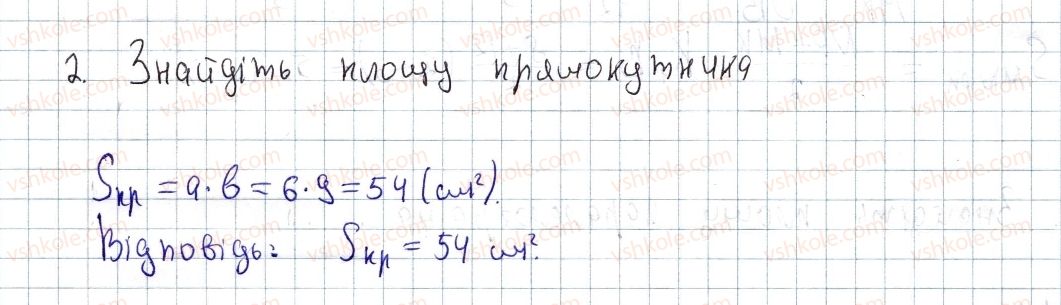 2. Знайдіть площу прямокутника
Sпр = a · b = 6 · 9 = 54 (см²).
Відповідь: Sпр = 54 см².